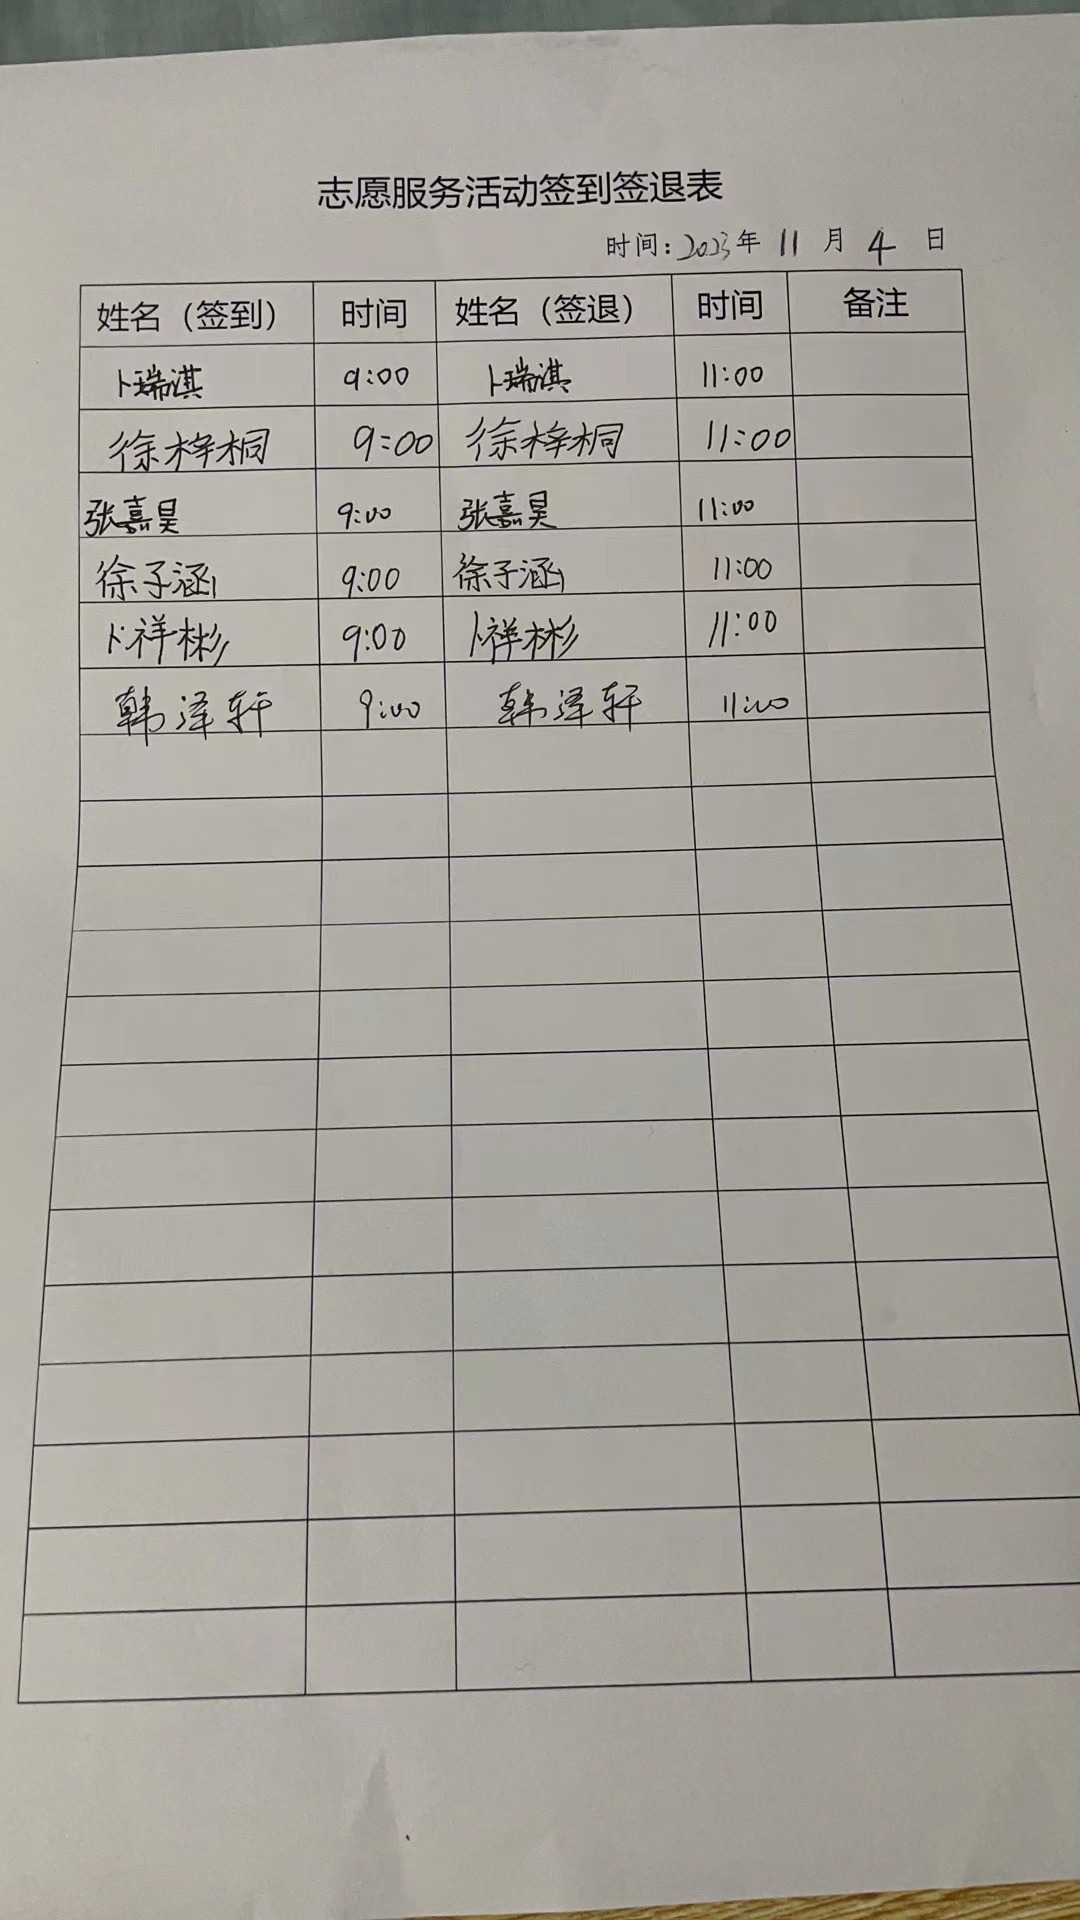 志愿服务活动签到签退表
时间:2023年 11 月 4 日
姓名（签到） 时间 姓名（签退） 时间 备注
卜瑞淇 9:00 卜瑞淇 11:00
徐梓桐 9:00 徐梓桐 11:00
张嘉昊 9:00 张嘉昊 11:00
徐子涵 9:00 徐子涵 11:00
卜祥彬 9:00 卜祥彬 11:00
韩泽轩 9:00 韩泽轩 11:00